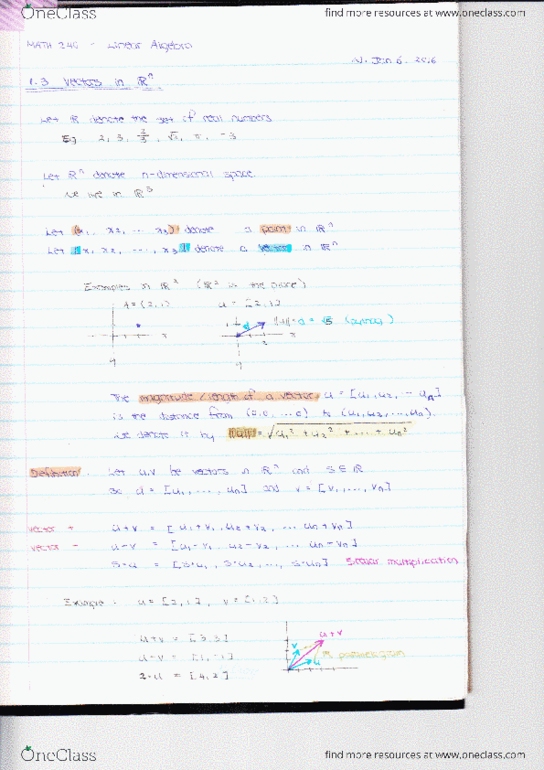 OneClass find more resources at www.oneclass.com
MATH 240 - Linear Algebra
Jan 6. 2016
1.3 Vectors in ℝⁿ
Let ℝ denote the set of real numbers
Eg 2, 3, 2/3, √2, π, -3
Let ℝⁿ denote n-dimensional space.
we live in ℝ³
Let (x₁, x₂, ... x₃) denote a point in ℝⁿ
Let [x₁, x₂, ..., x₃] denote a vector in ℝⁿ
Examples in ℝ² (ℝ² is the plane)
A = (2, 1) u = [2, 1]
||u|| = √5
The magnitude/length of a vector u = [u₁, u₂, ... uₙ]
is the distance from (0,0, ...0) to (u₁, u₂, ..., uₙ).
we denote it by ||u|| = √u₁² + u₂² + ... + uₙ²
Definition: Let u,v be vectors in ℝⁿ and s ∈ ℝ
so u = [u₁, ..., uₙ] and v = [v₁, ..., vₙ]
vector + u+v = [u₁+v₁, u₂+v₂, ... uₙ+vₙ]
vector - u-v = [u₁-v₁, u₂-v₂, ... uₙ-vₙ]
s·u = [s·u₁, s·u₂, ..., s·uₙ] scalar multiplication
Example: u = [2,1], v = [1,2]
u+v = [3,3]
u-v = [1,-1]
2·u = [4,2]
u+v
v
u
parallelogram
OneClass find more resources at www.oneclass.com